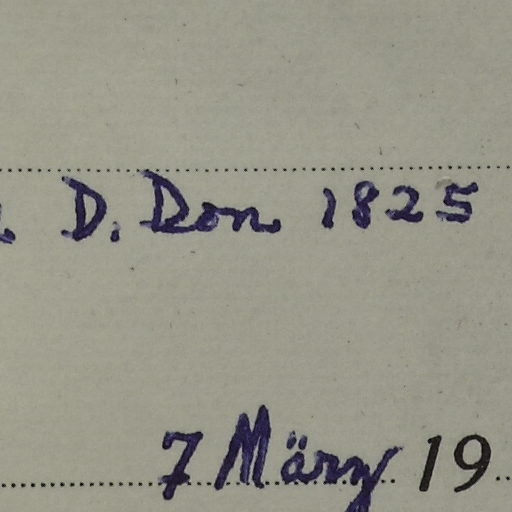 D. Don 1825
7 März 19